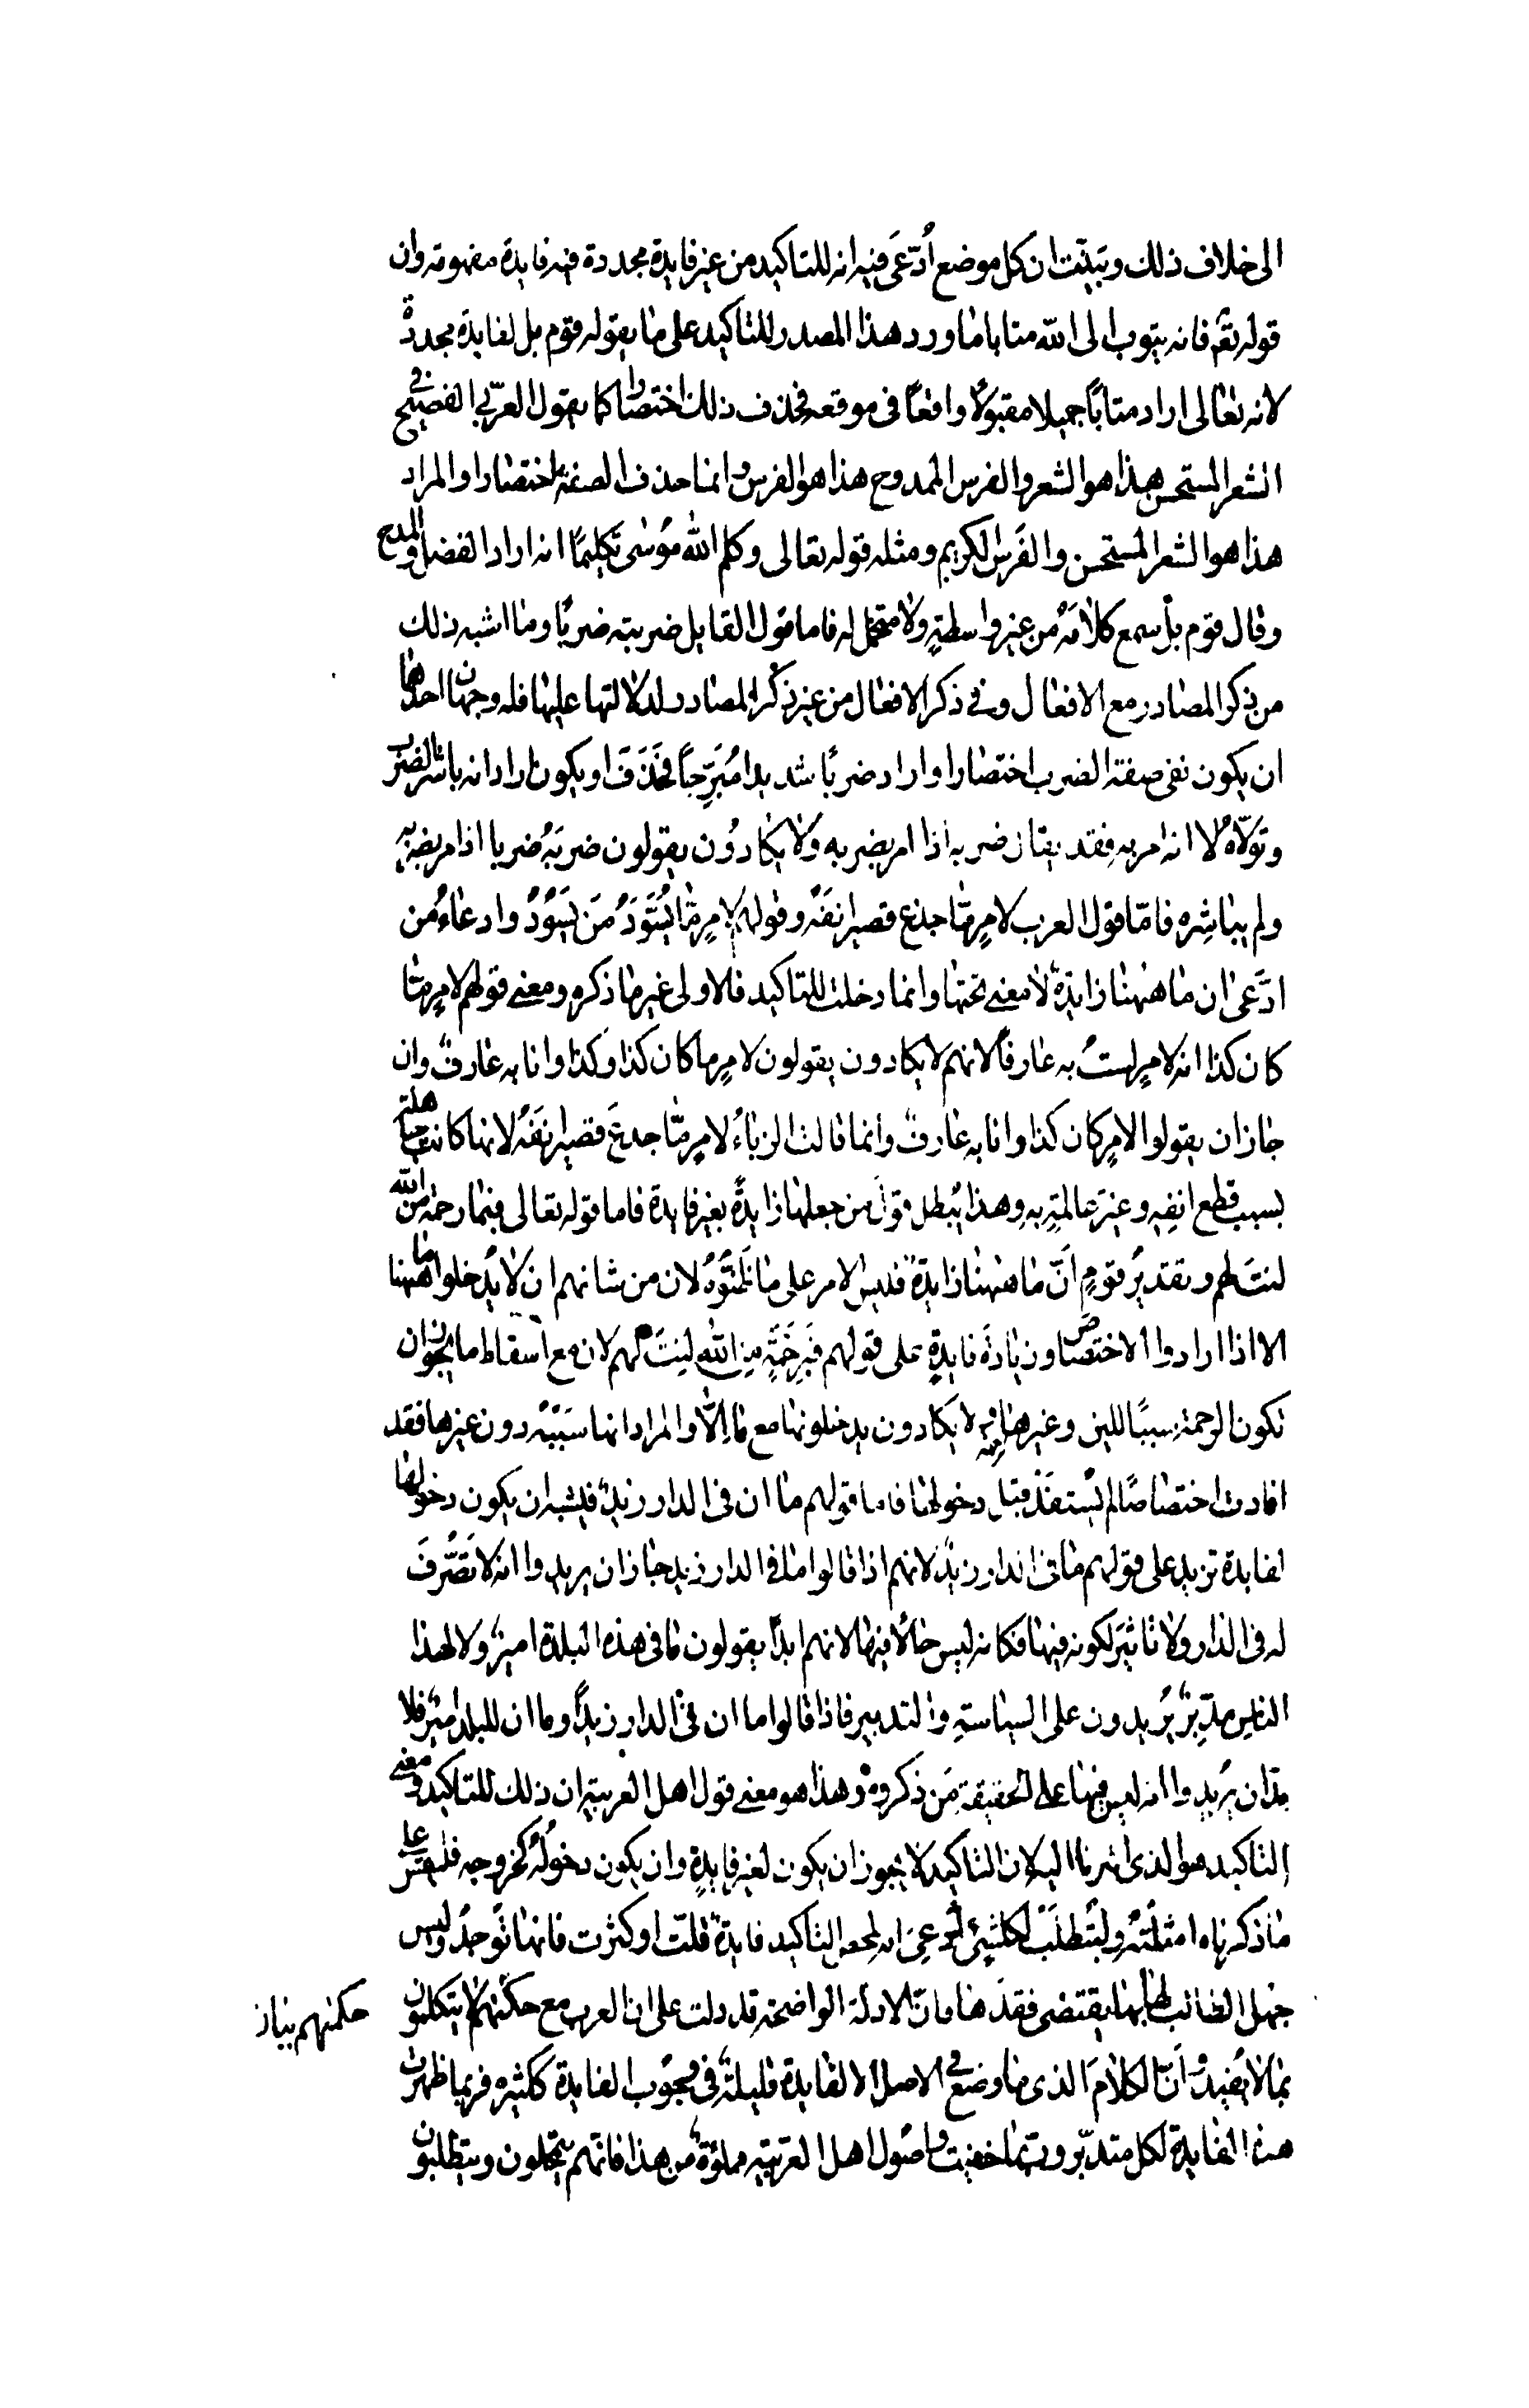 الى خلاف ذلك وتبيّنت ان كل موضع اُدّعَى فيه انه للتاكيد من غير فايدة مجددة فيه فايدة مفهومة وان
قوله تعٰ فانه يتوب الى الله متابا ما ورد هذا المصدر للتاكيد على ما يقوله قوم بل لفايدة مجددةٍ
لانه تعالى اراد متاباً جميلا مقبولاً واقعاً فى موقعه فحذف ذلك اختصارا كما يقول العربى الفصيح فى
الشعر المستحسن هذا هو الشعر والفرس الممدوح هذا هو الفرس وانما حذف الصفة اختصارا والمراد
هذا هو الشعر المستحسن والفَرس الكريم ومثله قوله تعالى وكلم الله مُوسٰى تكليمًا انه اراد الفضل والمدح
وقال قوم بل سمع كلامَهُ من غير واسطةٍ ولا متحمّل له فاما قول القايل ضربته ضربًا وما اشبه ذلك
من ذكر المصادر مع الافعال وفى ذكر الافعال من غير ذكر المصادر لدلالتها عليها فله وجهان احدهما
ان يكون نفى صفة الضرب اختصارا واراد ضربًا شديدا مُبَرِّحاً فحَذَفَ او يكون اراد انه باشر الضرب
وتولّاهُ لا انه امر به فقد يقال ضربه اذا امر بضربه ولا يكادُون يقولون ضربَهُ ضربا اذا امر بضربه
ولم يباشِره فامّا قول العرب لامرٍ مّا جذع قصير انفَهُ وقولهم لامرٍ مّا يُسَوَّدُ مَن يَسُوْدُ وادعاءُ من
ادَّعى ان ما ههنا زايدةٌ لا معنى تحتها وانما دخلت للتاكيد فالاولى غير ما ذكره ومعنى قولهم لامرٍ مّا
كان كذا انه لامرٍ لستُ به عارفاً لانهم لا يكادون يقولون لامرٍ ما كان كذا وكذا وانا به عارفٌ وان
جاز ان يقولوا لامرٍ كان كذا وانا به عارفٌ وانما قالت الزباءُ لامرٍ مّا جدعَ قصير انفَهُ لانها كانت جاهلة
بسبب قطع انفِهِ وغيرَ عالمةٍ بهِ وهذا يُبطل قولَ من جعلها زايدةً بغير فايدة فاما قوله تعالى فبما رحمة من الله
لنتَ لهم وتقديرُ قومٍ اَنَّ ما ههنا زايدةٌ فليس الامر على ما ظنُّوُهُ لان من شانهم ان لا يُدخلوا ما ههنا
الا اذا ارادوا الاختصاص وزيادةَ فايدةٍ على قولهم فَبِرَحْمَةٍ مِنَ اللهِ لِنتَ لهم لان مع اسقاط ما يجوز ان
تكون الرحمة سببًا للين وغيرها لا يكادون يدخلونها مع ما اِلّا والمراد انها سَبَبُهُ دون غيرها فقد
افادت اختصاصًا لم يُستفَدْ قبل دخولها فاما قولهم ما ان فى الدار زيدٌ فليشبه ان يكون دخولها
لفايدة تزيد على قولهم ما فى الدار زيدٌ لانهم اذا قالوا ما فى الدار زيد جاز ان يريدوا انه لا تصَّرُفَ
له فى الدار ولا تاثيرَ لكونه فيها فكانه ليس حالًا فيها لانهم ابدًا يقولون ما فى هذه البلدة اميرٌ ولا لهذا
الناس مدبّرٌ يُريدون على السياسةِ والتدبير فاذا قالوا ما ان فى الدار زيدٌ وما ان للبلد اميرٌ فلا
بدّ ان يُريدوا انه ليس فيها على الحقيقة مَن ذكروهُ وهذا هو معنى قول اهل العربية ان ذلك للتاكيد ومعنى
التاكيد هو الذى اشرنا اليه لان التاكيد لا يجوز ان يكون لغير فايدةٍ وان يكون دخولُهُ كخروجه فليقس على
ما ذكرناه امثلَتُهُ وليُتطلّبْ لكل شىءٍ اُدُّعِىَ انه لمحض التاكيد فايدةٌ قلّت او كثرت فانها تُوجدُ وليس
جهل الطالب لها بها يقتضى فقدَها فانّ الادلة الواضحة قد دلت على ان العرب مع حكمتهم لا يتكلمون
حكمتهم بيان
بما لا يُفيدُ وانّ الكلامَ الذى ما وضع فى الاصل الا لفايدة قليلهُ فى وجُوب الفايدة ككثيره فربما ظهرت
هذه الفايدة لكل متدبّر وربّما خفيت واصُول اهل العربيّة مملوّةٌ من هذا فانّهم يتمحلون ويتطلبون